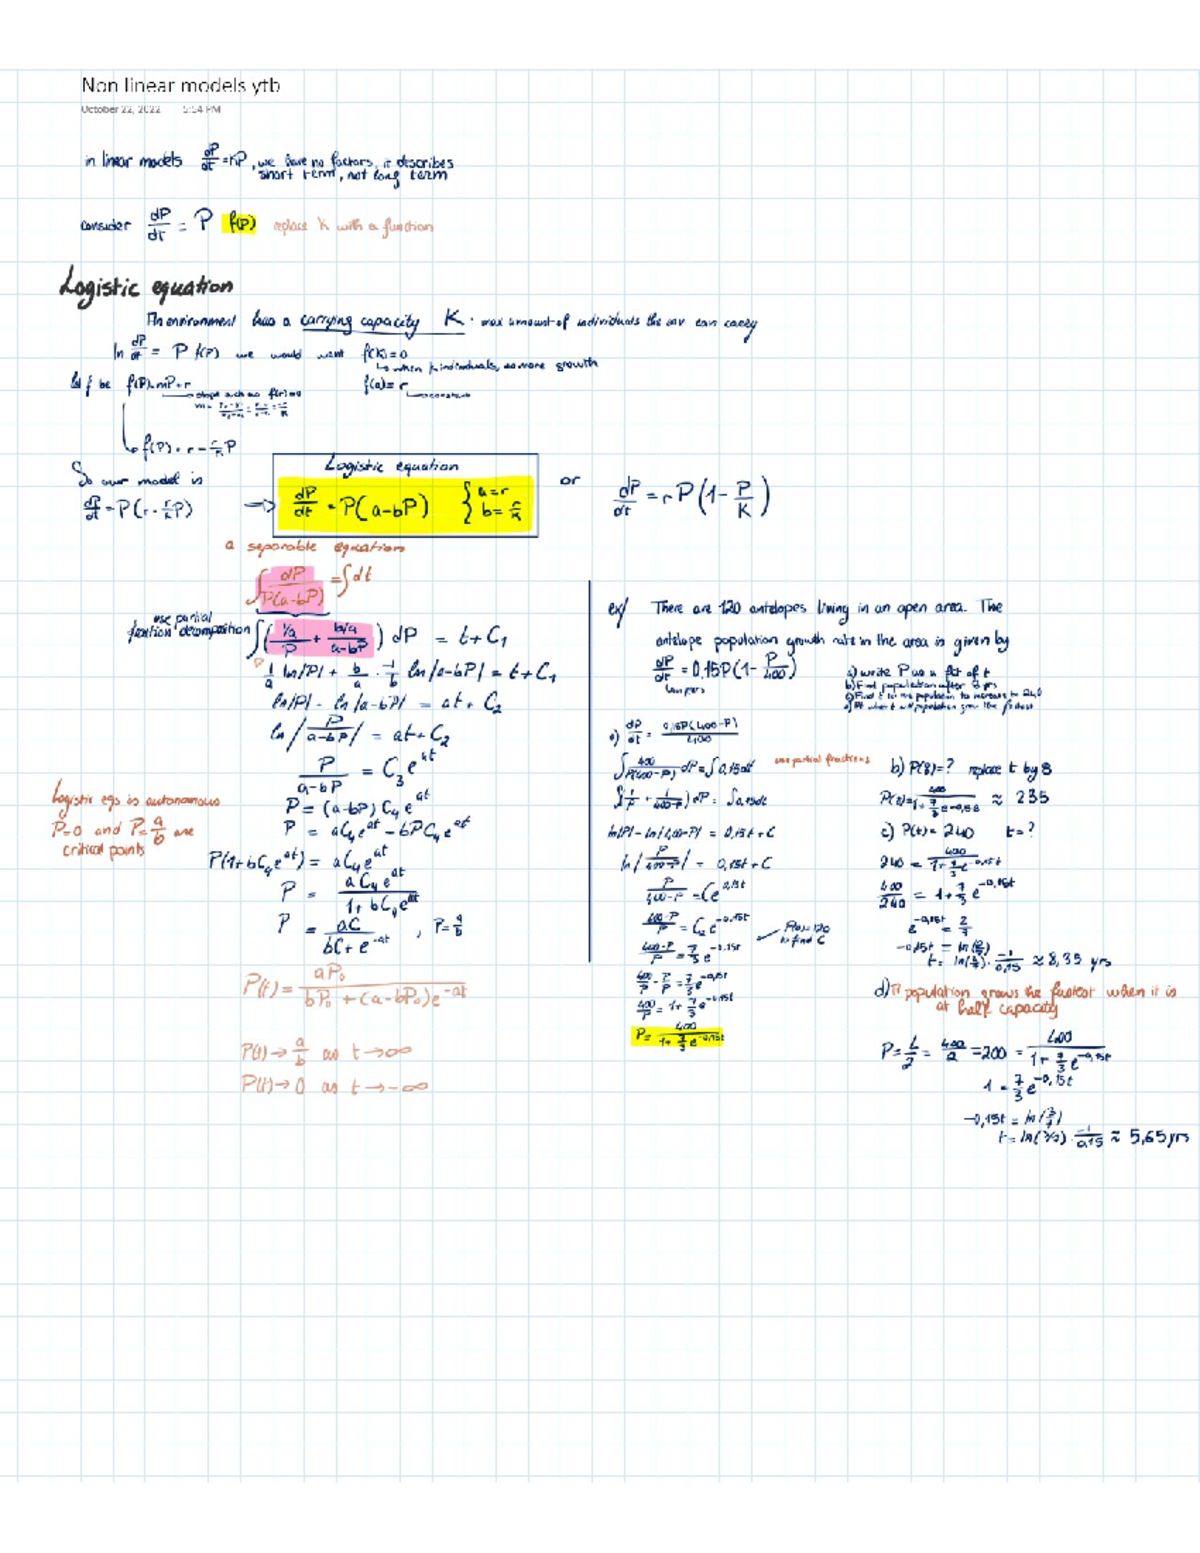 Non linear models ytb
October 22, 2022 5:54 PM
in linear models dP/dt = kP, we have no factors, it describes
short term, not long term
consider dP/dt = P f(P) replace K with a function
Logistic equation
An environment has a carrying capacity K: max amount of individuals the env can carry
In dP/dt = P f(P) we would want f(K)=0
↳ when K individuals, no more growth
let f be f(P)=mP+r
f(0)=r
→ constant
↳ f(P) = r - r/K P
So our model is
dP/dt = P(r - r/K P)
⇒ Logistic equation
dP/dt = P(a-bP) { a=r
b= r/K
or dP/dt = rP(1 - P/K)
a separable equation
∫ dP/P(a-bP) = ∫dt
use partial
fraction decomposition ∫( 1/a/P + b/a/a-bP ) dP = t+C₁
1/a ln|P| + b/a · -1/b ln|a-bP| = t+C₁
ln|P| - ln|a-bP| = at+C₂
ln|P/a-bP| = at+C₂
P/a-bP = C₃e^at
P = (a-bP) C₄e^at
P = aC₄e^at - bPC₄e^at
P(1+bC₄e^at) = aC₄e^at
P = aC₄e^at/1+bC₄e^at
P = aC/bC+e^-at , P=a/b
Logistic eqs is autonomous
P=0 and P=a/b are
critical points
P(t) = aP₀/bP₀+(a-bP₀)e^-at
P(t)→a/b as t→∞
P(t)→0 as t→-∞
ex/ There are 120 antelopes living in an open area. The
antelope population growth rate in the area is given by
dP/dt = 0,15P(1 - P/400)
a) write P as a fct of t
b) Find population after 8 yrs
c) Find t for the population to increase to 240
d) At what t will population grow the fastest
a) dP/dt = 0,15P(400-P)/400
∫ 400/P(400-P) dP = ∫0,15dt use partial fractions
∫(1/P + 1/400-P) dP = ∫0,15dt
ln|P| - ln|400-P| = 0,15t+C
ln|P/400-P| = 0,15t+C
P/400-P = Ce^0,15t
400-P/P = C₂e^-0,15t
P(0)=120
to find C
400-P/P = 7/3 e^-0,15t
400/P - P/P = 7/3 e^-0,15t
400/P = 1+7/3 e^-0,15t
P = 400/1+7/3 e^-0,15t
b) P(8)=? replace t by 8
P(8) = 400/1+7/3 e^-0,15·8 ≈ 235
c) P(t)=240 t=?
240 = 400/1+7/3 e^-0,15t
400/240 = 1+7/3 e^-0,15t
e^-0,15t = 2/7
-0,15t = ln(2/7)
t = ln(2/7) · -1/0,15 ≈ 8,35 yrs
d) A population grows the fastest when it is
at half capacity
P = L/2 = 400/2 = 200 = 400/1+7/3 e^-0,15t
1 = 7/3 e^-0,15t
-0,15t = ln(3/7)
t = ln(3/7) · -1/0,15 ≈ 5,65 yrs